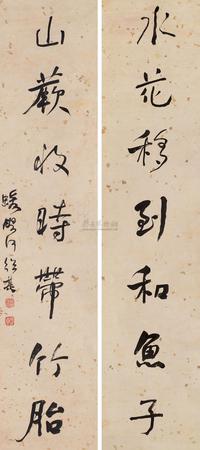 水花移到和魚子
山蕨收時帶竹胎
蝯叟何紹基